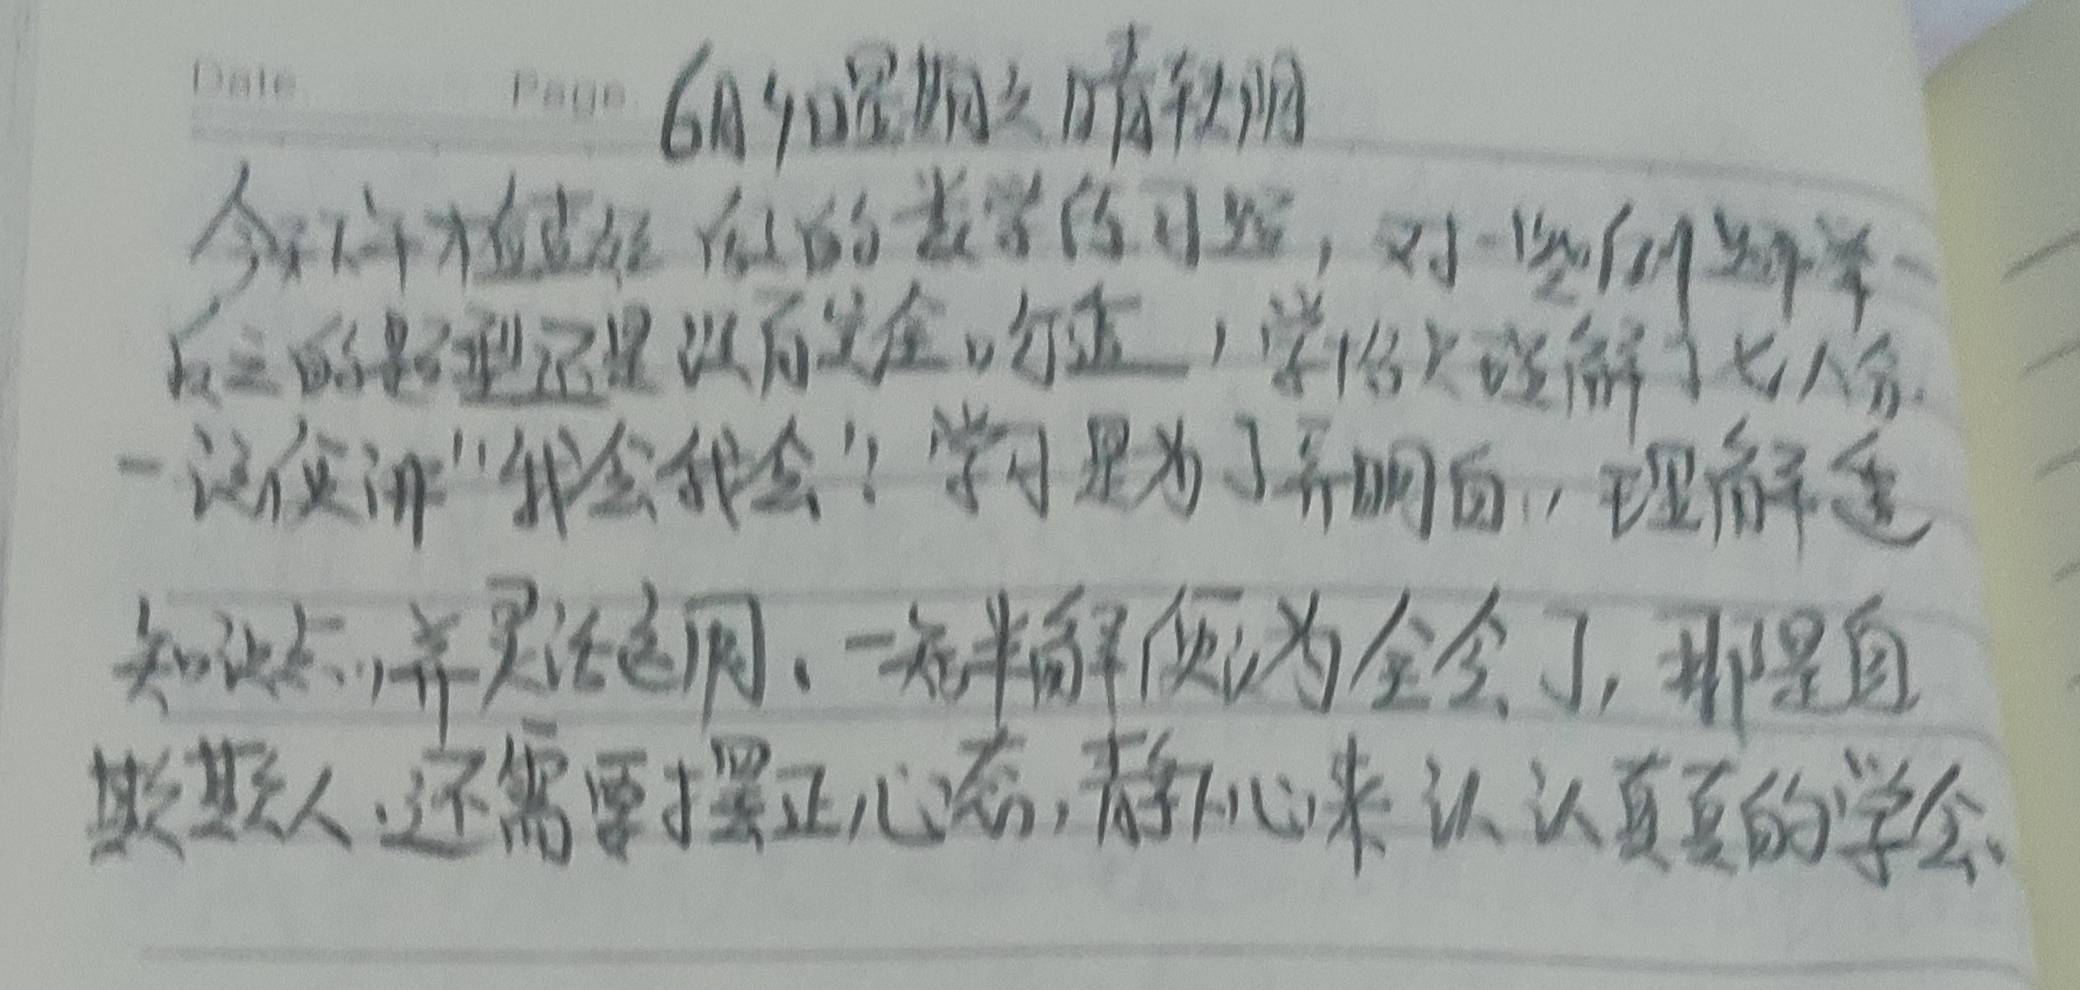 Date Page 6月9日星期 晴转阴
今天下午检查 做的数学练习题，对一些例题举一
反三的题型还是没有完全吃透，学 理解了七八分
一 便讲"我会我会"！学习是为了弄明白，理解透
知识点，并灵活运用、一知半解便认为全会了，那是自
欺欺人．还需要摆正心态，静下心来认认真真的学会、